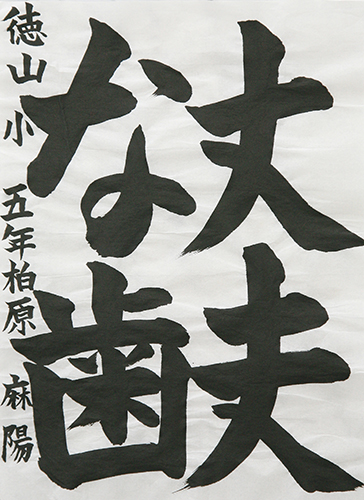 丈夫
な歯
徳山小 五年 柏原 麻陽